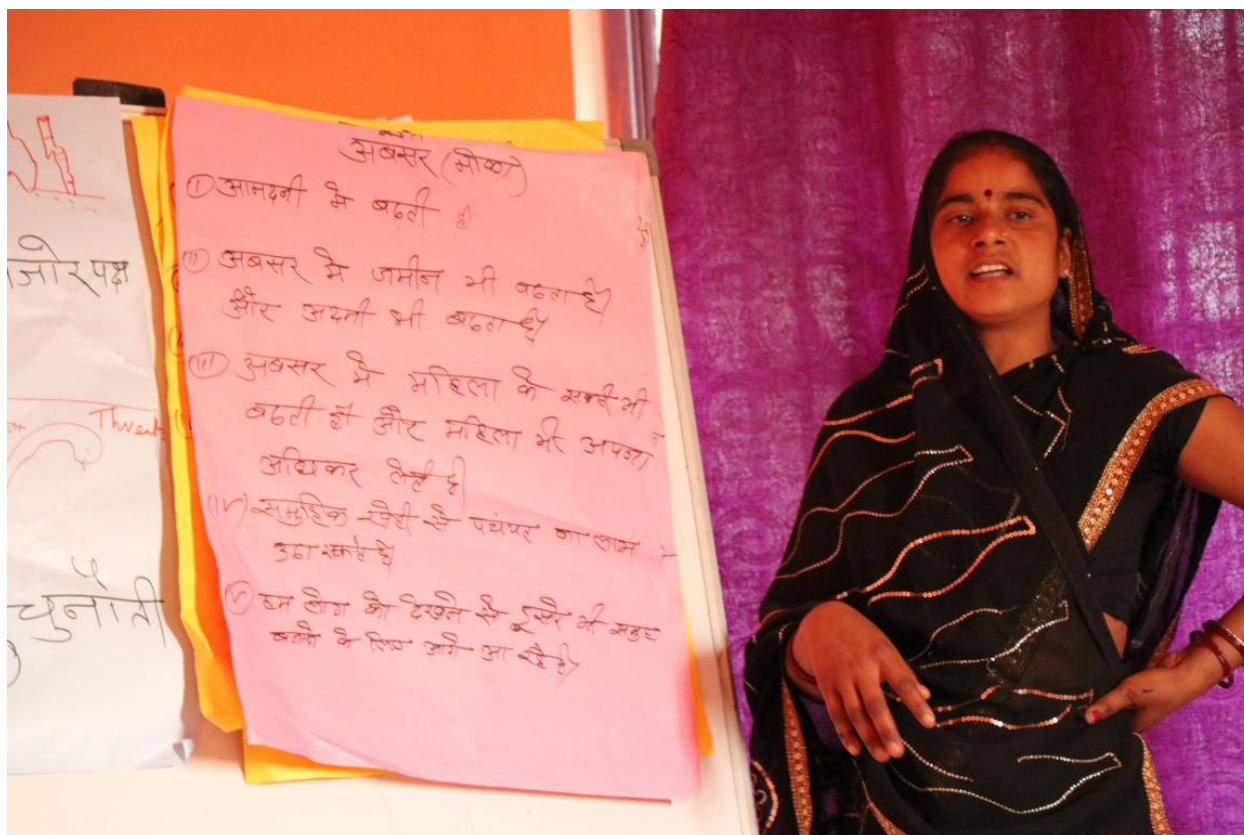 जोर पक्ष
Threat
चुनौती
अबसर (मौका)
(I) आमदनी मे बढ़ती है
(II) अबसर मे जमीन भी बढता है।
और अदनी भी बढता है।
(III) अबसर मे महिला के भी
बढती है और महिला भी अपना
अधिकर लेती है।
(IV) समुहिक खेती से का लाभ
उठा सकते है।
(V) हम लोग को देखने से दूसरे भी समुह
बनाने के लिए आगे आ रहे है।